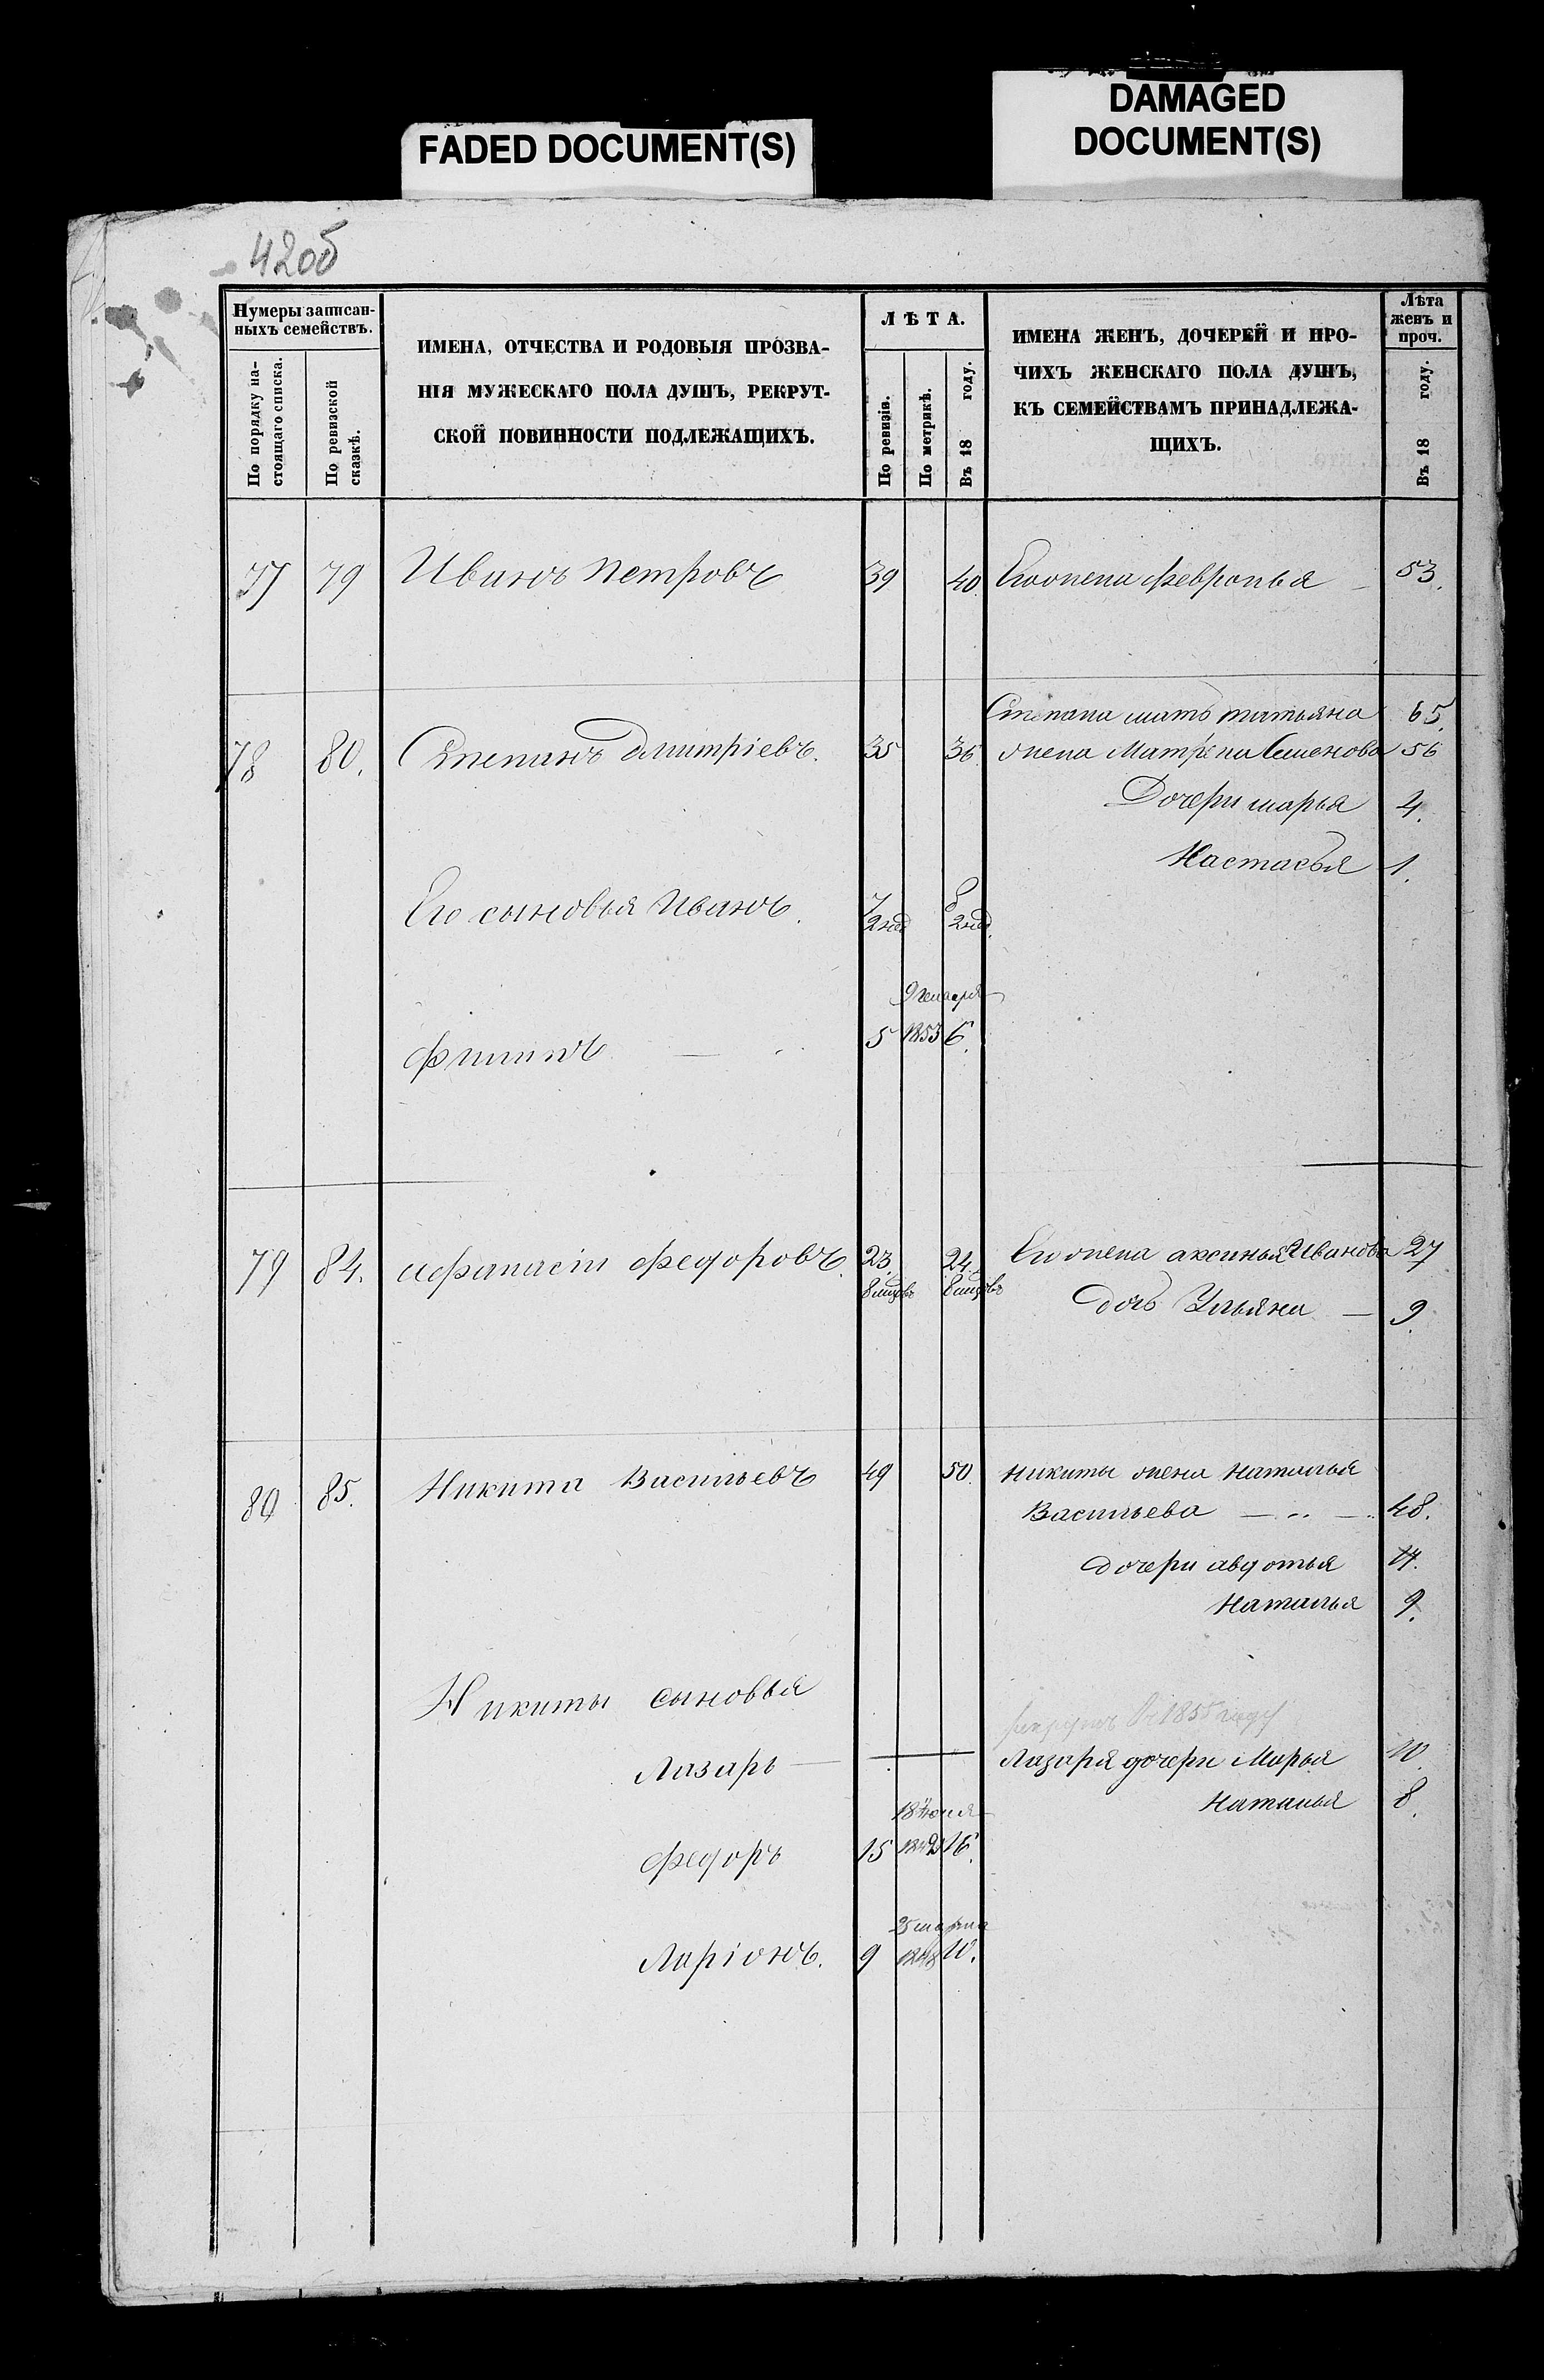 FADED DOCUMENT(S)
DAMAGED
DOCUMENT(S)
42об
Нумеры записан-
ныхъ семействъ.
По порядку на-
стоящаго списка.
По ревизской
сказкѣ.
ИМЕНА, ОТЧЕСТВА И РОДОВЫЯ ПРОЗВА-
НІЯ МУЖЕСКАГО ПОЛА ДУШЪ, РЕКРУТ-
СКОЙ ПОВИННОСТИ ПОДЛЕЖАЩИХЪ.
ЛѢТА.
По ревизіи.
По метрикѣ.
Въ 18 году.
ИМЕНА ЖЕНЪ, ДОЧЕРЕЙ И ПРО-
ЧИХЪ ЖЕНСКАГО ПОЛА ДУШЪ,
КЪ СЕМЕЙСТВАМЪ ПРИНАДЛЕЖА-
ЩИХЪ.
Лѣта
женъ и
проч.
Въ 18 году.
77 79 Иванъ Петровъ 39 40. Его жена Февронья — 53.
Степана мать татьяна 65.
78 80. Степанъ Дмитріевъ. 35 36. жена Матрена Семенова 56
Дочери марья 4.
Настасья 1.
Его сыновья Иванъ. 7 8
2 нед 2 нед.
9 генваря
Филипъ — 5 1853 6.
79 84. Афанасіи Федоровъ. 23. 24. Его жена аксинья Иванова 27
8 мцовъ 8 мцовъ
дочь Ульяна — 9.
80 85. Никита Васильевъ 49 50. Никиты жена Наталья
Васильева — 48.
дочери авдотья 14.
Наталья 9.
Никиты сыновья
рекрутъ въ 1855 году
Лазарь — Лазаря дочери Марья 10.
Наталья 8.
18 июня
Федоръ 15 16.
25 марта
Ларіонъ. 9 1848 10.